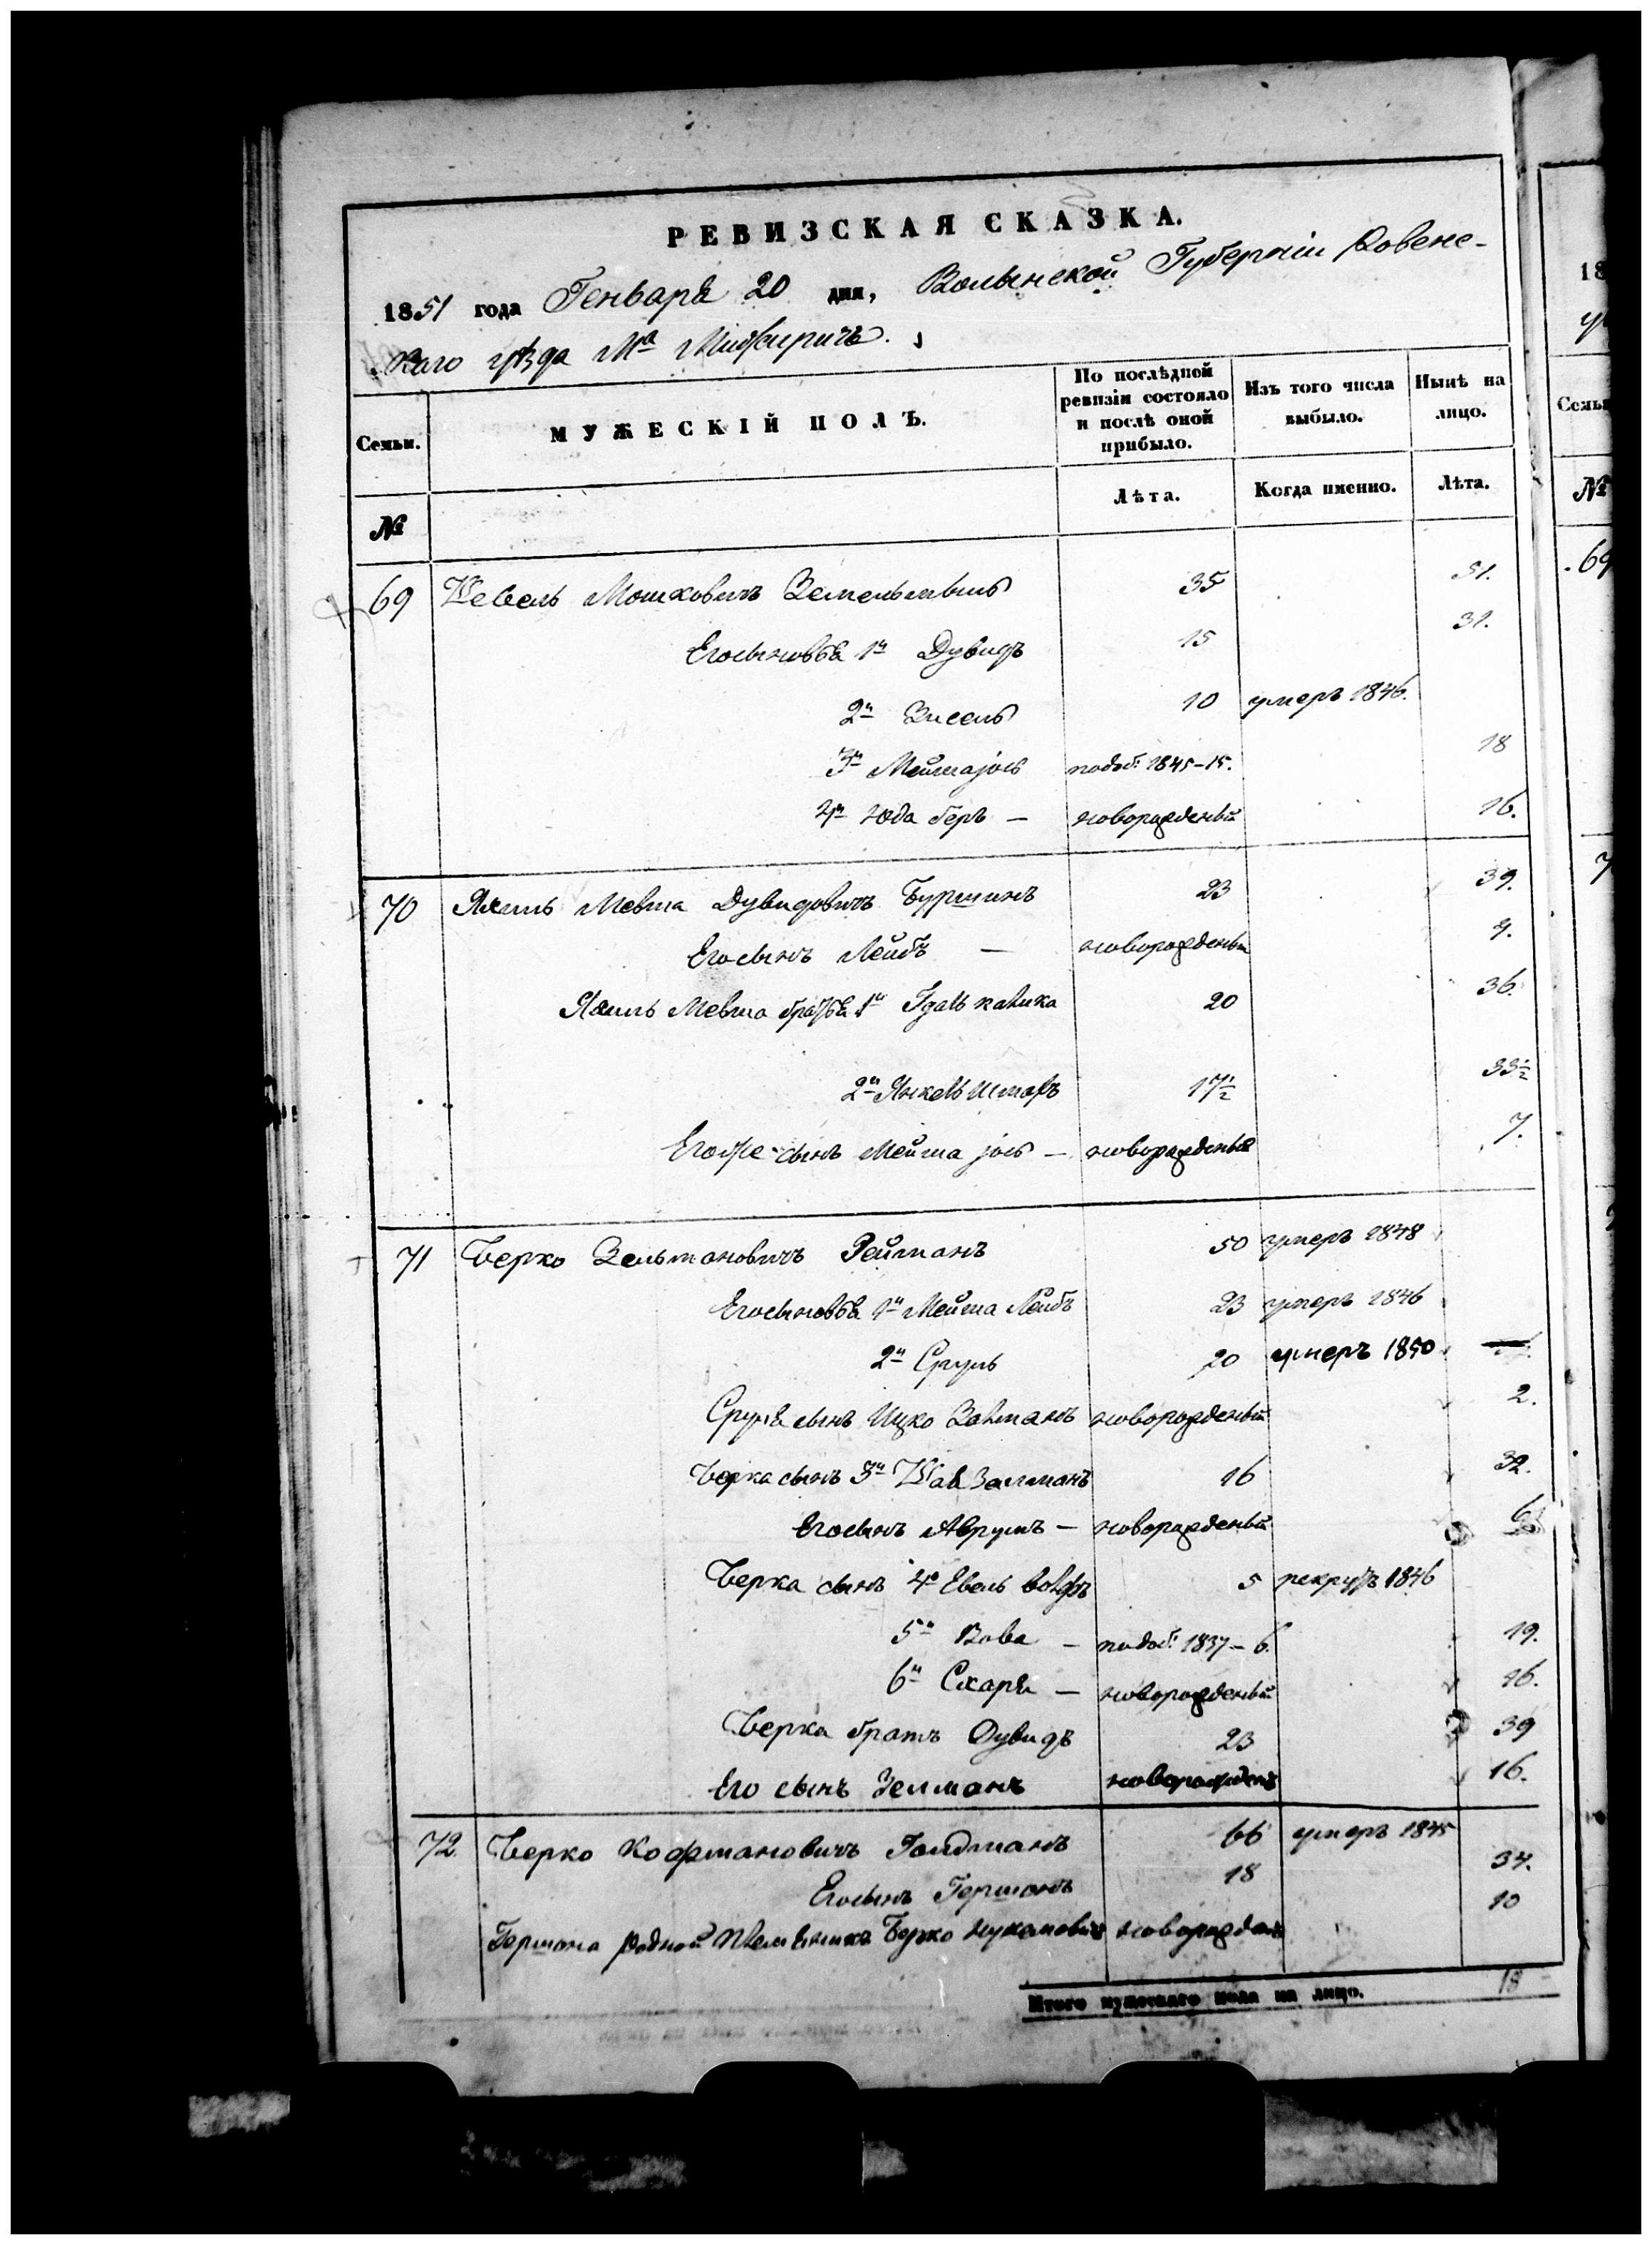 РЕВИЗСКАЯ СКАЗКА.
1851 года Генваря 20 дня, Волынской Губерніи Ровенс-
каго уѣзда Мª Межиричъ.
18
Семьи.
МУЖЕСКІЙ ПОЛЪ.
По послѣдней ревизіи состояло и послѣ оной прибыло.
Изъ того числа выбыло.
Нынѣ на лицо.
Семьи
№
Лѣта.
Когда именно.
Лѣта.
№
69 Мошковичъ 35 51.
69
Его сыновья 1й Дувидъ 15 31.
2й Зисель 10 умеръ 1846.
3й 1845-15. 18
4й Юда беръ — новорожденый 16.
70 Дувидовичъ Бурштинъ 23 39.
Его сынъ Лейбъ — новорожденый 9.
братья 1й 20 36.
2й Янкель 17½ 33½
Его же сынъ — новорожденый 7.
71 Берко Зельмановичъ Рейманъ 50 умеръ 1848
Его сыновья 1й Лейбъ 23 умеръ 1846
2й Сруль 20 умеръ 1850
Сруля сынъ Ицко Залманъ новорожденый 2.
Берка сынъ 3й Залманъ 16 32.
Его сынъ Аврумъ — новорожденый 6
Берка сынъ 4й Евель волфъ 5 рекрутъ 1846
5й Вова — 1837-6. 19.
6й Схаря — новорожденый 16.
Берка братъ Дувидъ 23 39
Его сынъ Зелманъ новорожденъ 16.
72 Берко Кофмановичъ Голдманъ 66 умеръ 1845
Его сынъ Гершонъ 18 34.
Гершона родной племяникъ Берко новорожден 10
Итого мужескаго пола на лицо. 18